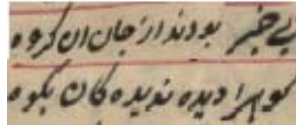 بی خبر بودند از جان ان کروه
کوهرا دیده ندیده کان بکوه